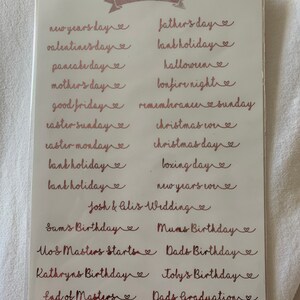 new years day
fathers day
valentines day
bank holiday
pancake day
halloween
mothers day
bonfire night
good friday
remembrance sunday
easter sunday
christmas eve
easter monday
christmas day
bank holiday
boxing day
bank holiday
new years eve
Josh & Ali's Wedding
Sams Birthday
Mums Birthday
Masters Starts
Dads Birthday
Kathryns Birthday
Tobys Birthday
End of Masters
Dads Graduation